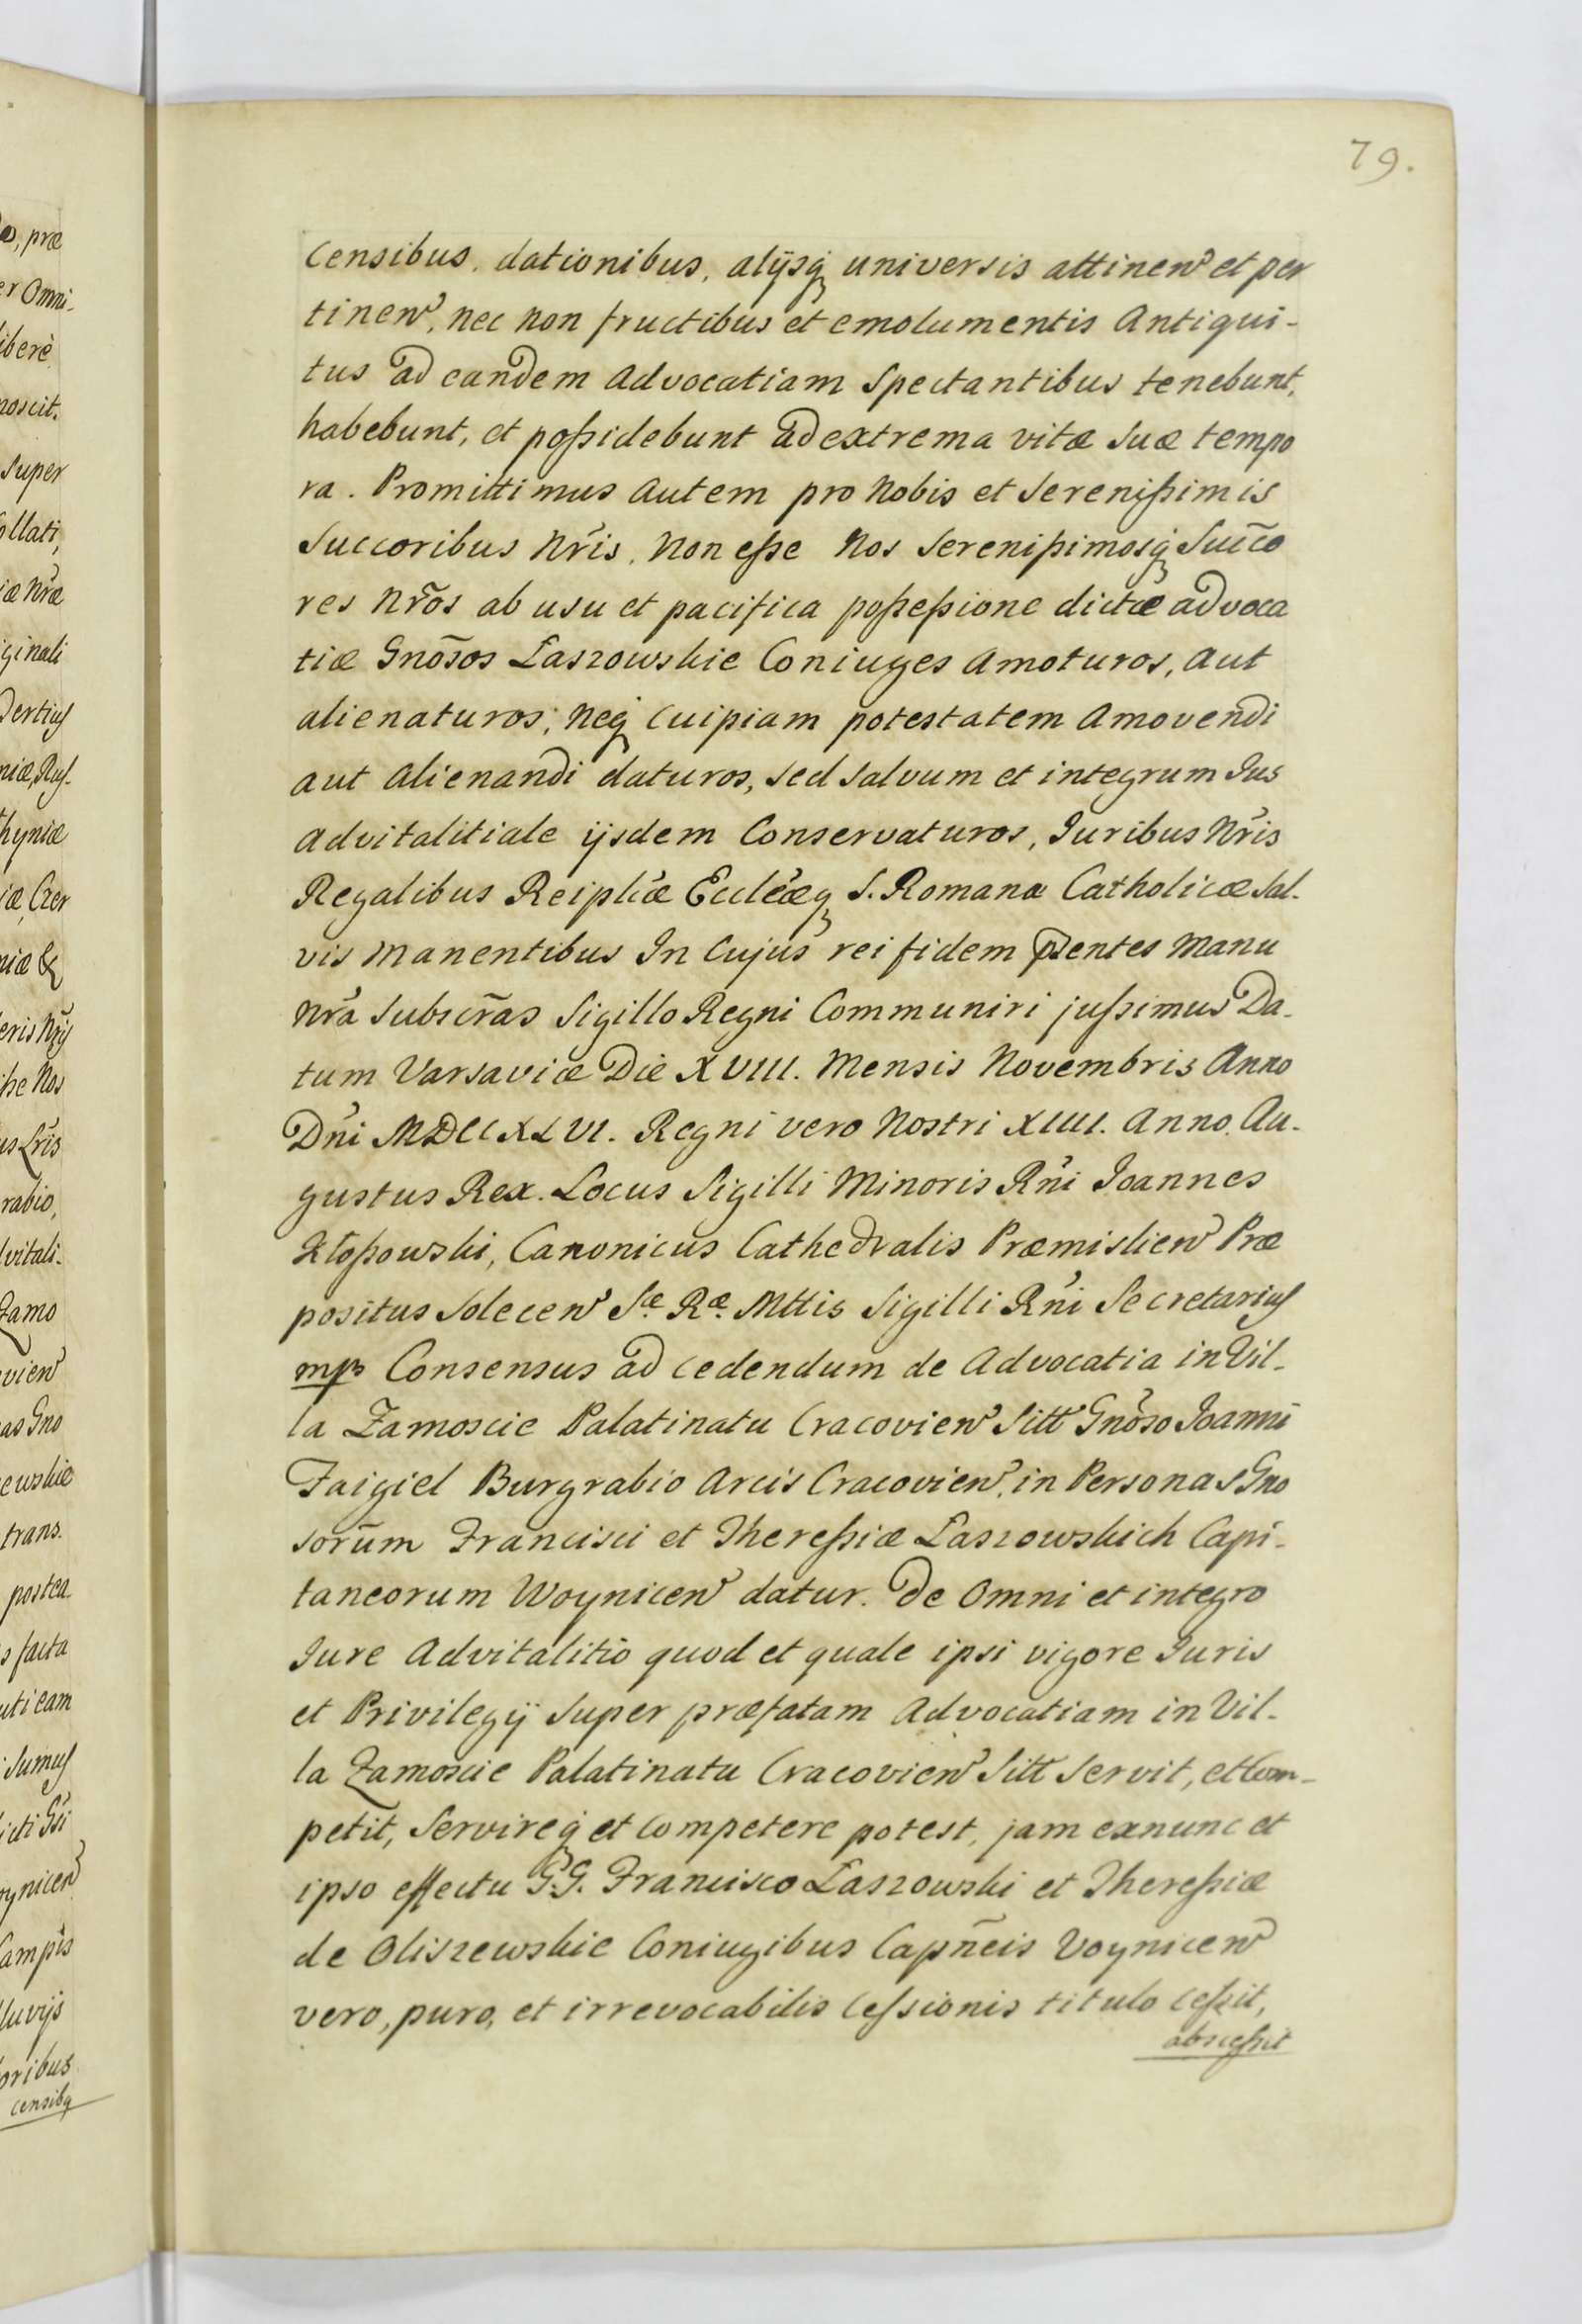 79.
censibus, dationibus, alijsq universis attinen et per
tinen, nec non fructibus et emolumentis Antiqui-
tus ad eandem Advocatiam Spectantibus tenebunt,
habebunt, et poßidebunt ad extrema vitæ suæ tempo
ra. Promittimus autem pro Nobis et Serenißimis
Succoribus Nr̃is, Non eße Nos Serenißimosq Suc̃co
res Nr̃os ab usu et pacifica poßeßione dictæ advoca
tiæ Gnõsos Laszowskie Coniuges Amoturos, Aut
alienaturos, Neq cuipiam potestatem Amovendi
aut Alienandi daturos, sed salvum et integrum Jus
advitalitiale ijsdem Conservaturos, Juribus Nr̃is
Regalibus Reiplicæ Eccleæq S. Romanæ Catholicæ Sal-
vis Manentibus In Cujus rei fidem p̃sentes Manu
Nr̃a Subscr̃as Sigillo Regni Communiri jußimus Da-
tum Varsaviæ Die XVIII. Mensis Novembris Anno
Dñi MDCCXLVI. Regni vero Nostri XIIII. Anno. Au-
gustus Rex. Locus Sigilli Minoris Rñi Joannes
Kłoßowski, Canonicus Cathedralis Præmislien Præ
positus Solecen Sæ Ræ. Mttis Sigilli Rñi Secretarius
mp Consensus ad cedendum de Advocatia in Vil-
la Zamoscie Palatinatu Cracovien Sitt Gnõso Joanni
Faigiel Burgrabio Arcis Cracovien, in Personas Gno
sorum Francisci et Thereßiæ Laszowskich Capi-
taneorum Woynicen datur. De Omni et integro
Jure Advitalitio quod et quale ipsi vigore Juris
et Privilegij super præfatam Advocatiam in Vil-
la Zamoscie Palatinatu Cracovien Sitt Servit, et Com-
petit, Servireq et Competere potest, jam exnunc et
ipso effectu G.G. Francisco Laszowski et Thereßiæ
de Oliszewskie Coniugibus Capñeis Voynicen
vero, puro, et irrevocabilis Cessionis titulo ceßit,
absceßit